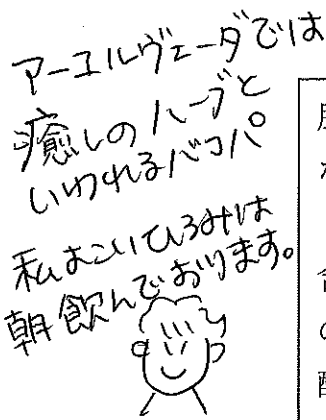 アーユルヴェーダでは
癒しのハーブと
いわれるバコパ
私はこいてひろみは
朝飲んでおります。